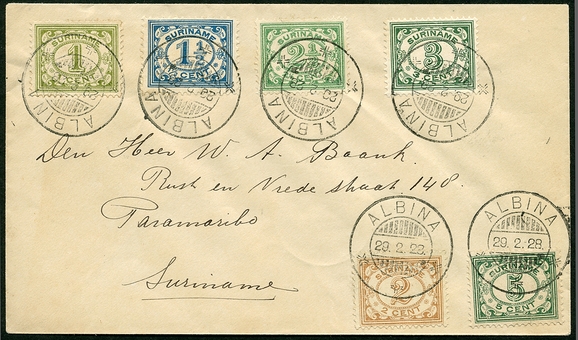 SURINAME
1
CENT
SURINAME
1 1/2
CENT
SURINAME
2 1/2
SURINAME
3
CENT
ALBINA
ALBINA
ALBINA
ALBINA
Den Heer W. A. Baank.
Rust en Vrede straat 148.
Paramaribo
Suriname
ALBINA
29.2.28.
ALBINA
29.2.28.
2
2 CENT
SURINAME
5
5 CENT